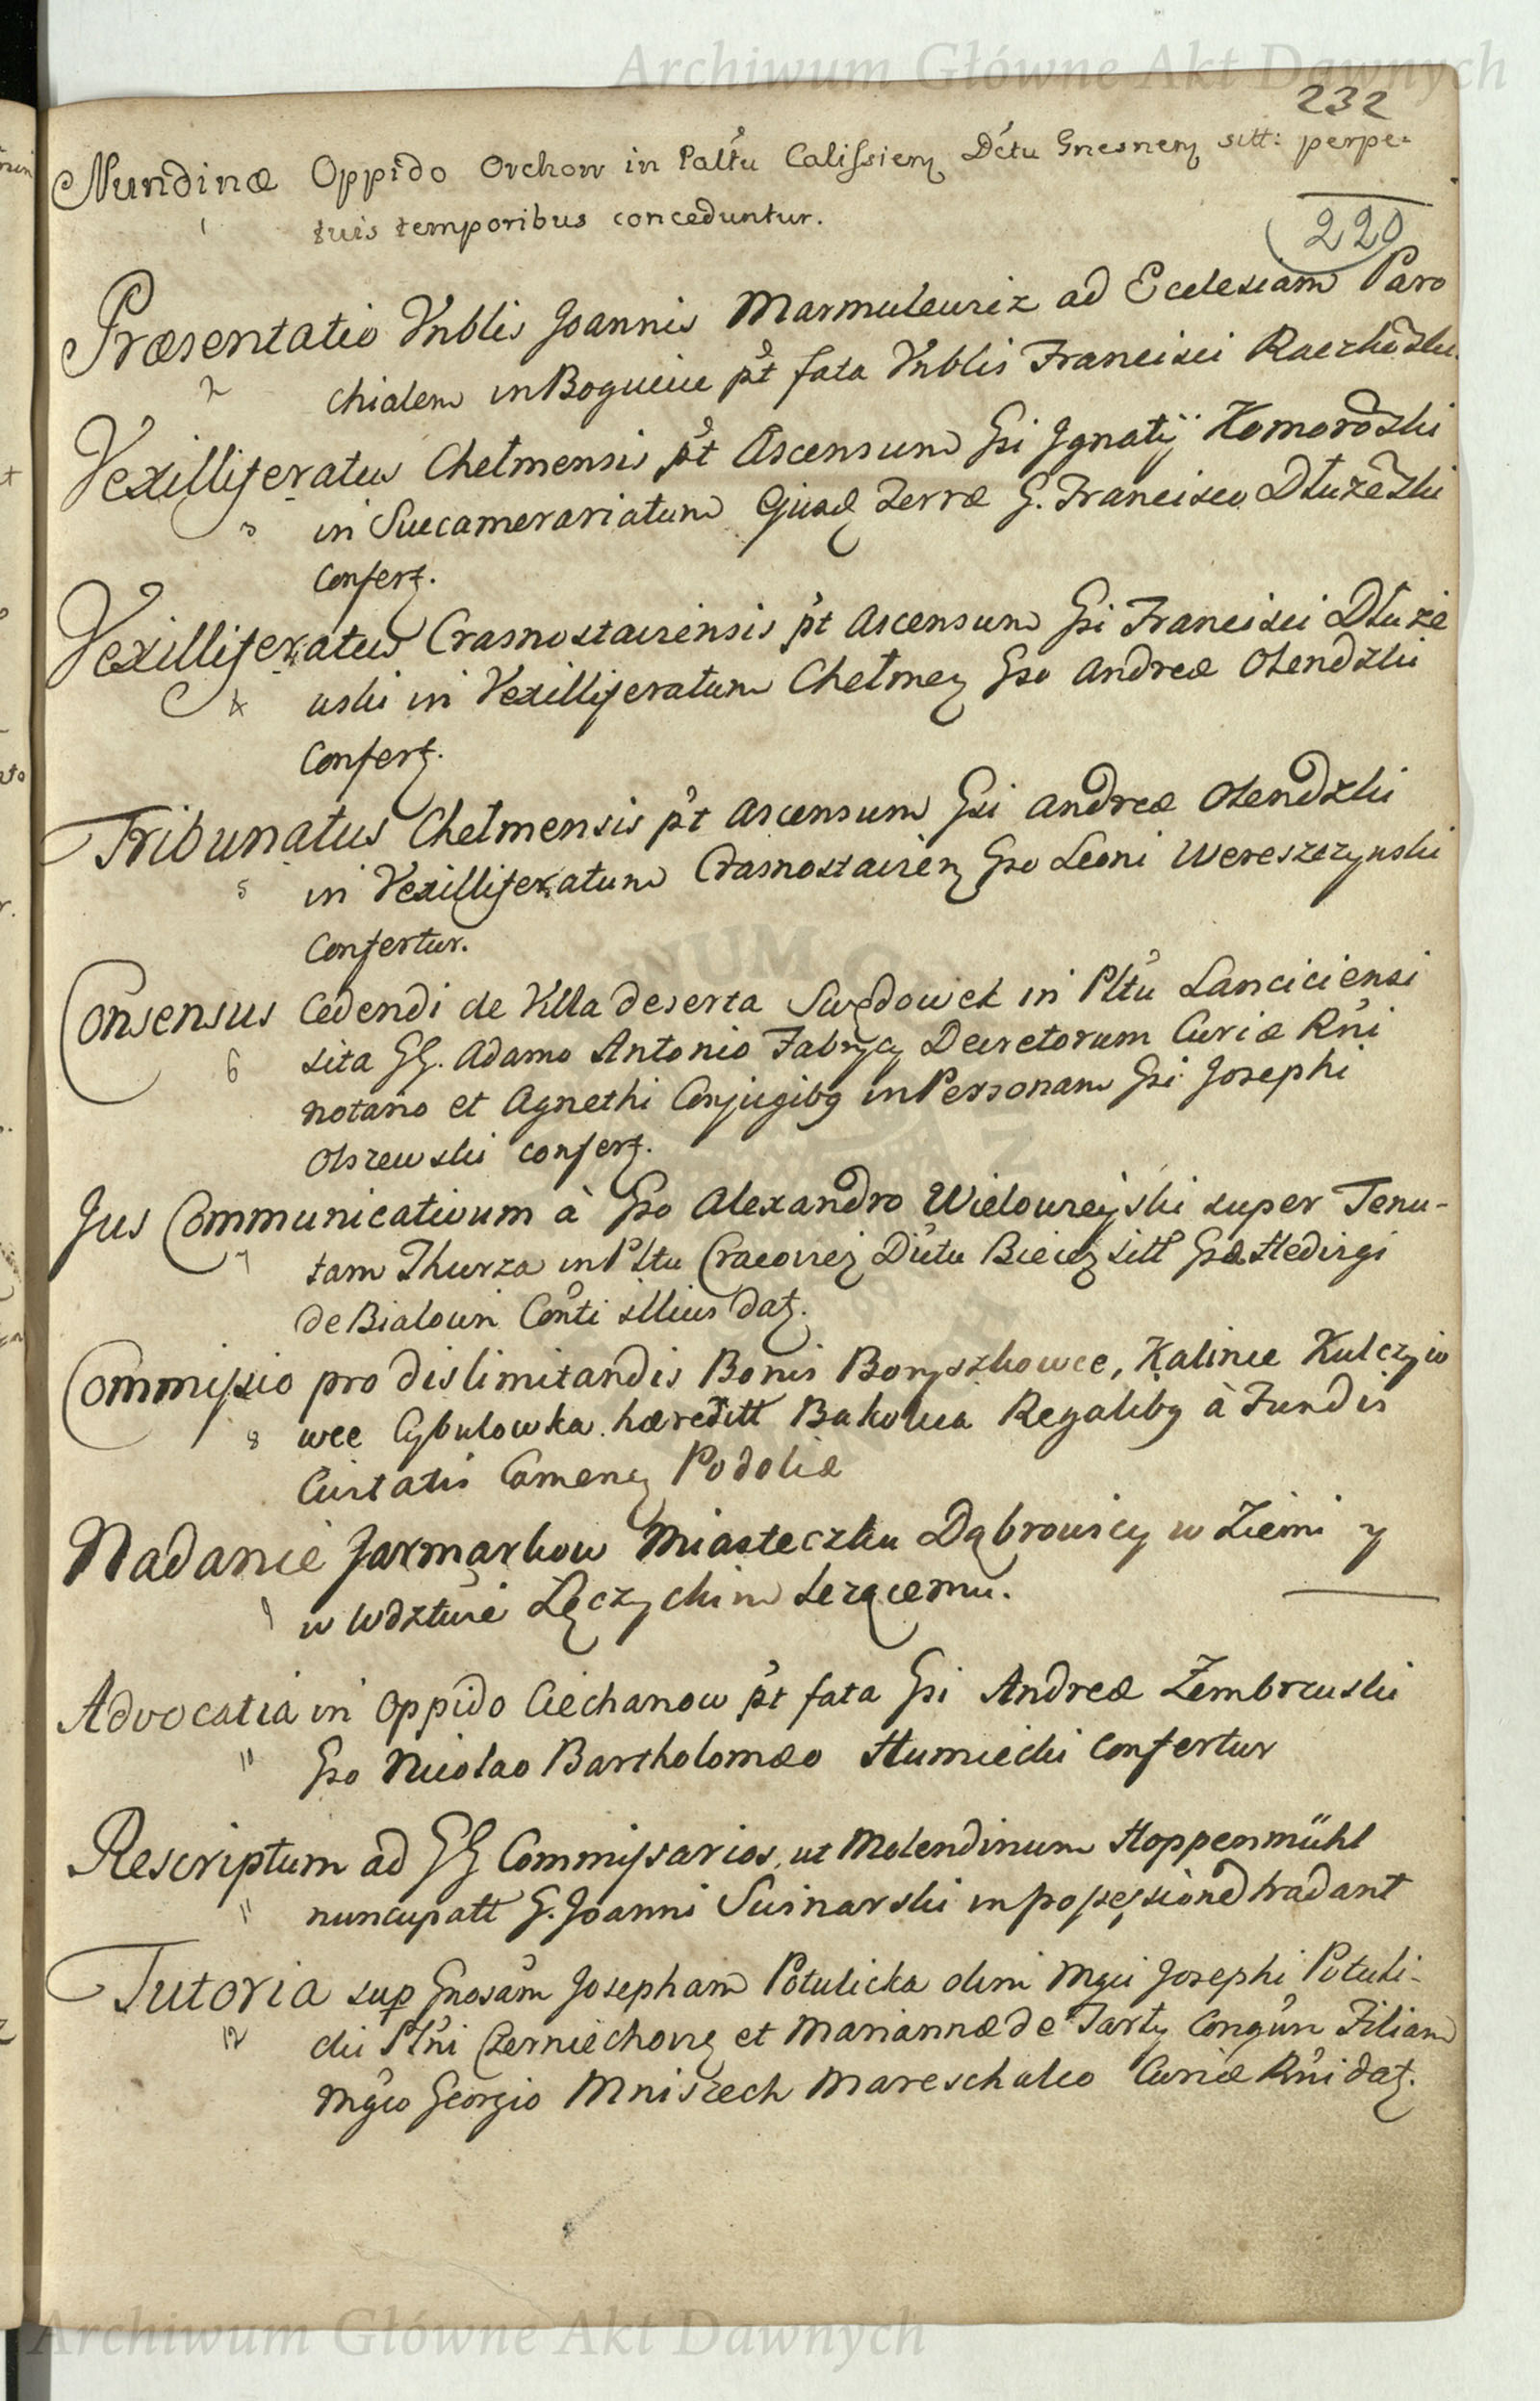 Archiwum Główne Akt Dawnych
232
Nundinæ Oppido Orchow in Paltu Calissien Dctu Gnesnen sitt: perpe-
1 tuis temporibus conceduntur.
220
Præsentatio Vnblis Joannis Marmulewiz ad Ecclesiam Paro
2 chialem in Boguciee pt fata Vnblis Francisci Raczkowski
Vexilliferatus Chełmensis pt Ascensum Gsi Ignatij Komorowski
3 in Succamerariatum Ejusd Terræ G. Francisco Dłużewski
Confert.
Vexilliferatus Crasnostaviensis pt ascensum Gsi Francisci Dłuże
4 wski in Vexilliferatum Chełmen Gso Andreæ Olendzki
Confert.
Tribunatus Chełmensis pt ascensum Gsi Andreæ Olendzki
5 in Vexilliferatum Crasnostavien Gso Leoni Wereszczynski
Confertur.
Consensus Cedendi de Villa deserta Swędowek in Pltu Lanciciensi
6 sita GG. Adamo Antonio Fabrycy Decretorum Curiæ Rni
notario et Agnethi Conjugibq in Personam Gsi Josephi
Olszewski confert.
Jus Communicativum à Gso Alexandro Wielowieyski super Tenu-
7 tam Thurza in Pltu Cracovien Dictu Biecen sitt Gsæ Hedvigi
de Bialowri Conti illius dat.
Commissio pro dislimitandis Bonis Boryszkowce, Kalinie Kulczyio
8 wce Cybulowka hæreditt Bakowia Regalibq à Fundis
Civitatis Camenen Podoliæ
Nadanie Jarmarkow Miasteczku Dąbrowicy w Ziemi y
9 w Wdztwie Łęczyckim Lezącemu.
Advocatia in Oppido Ciechanow pt fata Gsi Andreæ Zembrzuski
10 Gso Nicolao Bartholomæo Humiecki Confertur
Rescriptum ad GG Commissarios, ut Molendinum Hoppenmühl
11 nuncupatt G. Joanni Swinarski in possessionem tradant
Tutoria sup Gnosam Josepham Potulicka olim Mgci Josephi Potuli-
12 cki Stni Czerniechovien et Mariannæ de Tarły Congum Filiam
Mgco Georgio Mniszech Mareschalco Curiæ Rni dat.
Archiwum Główne Akt Dawnych